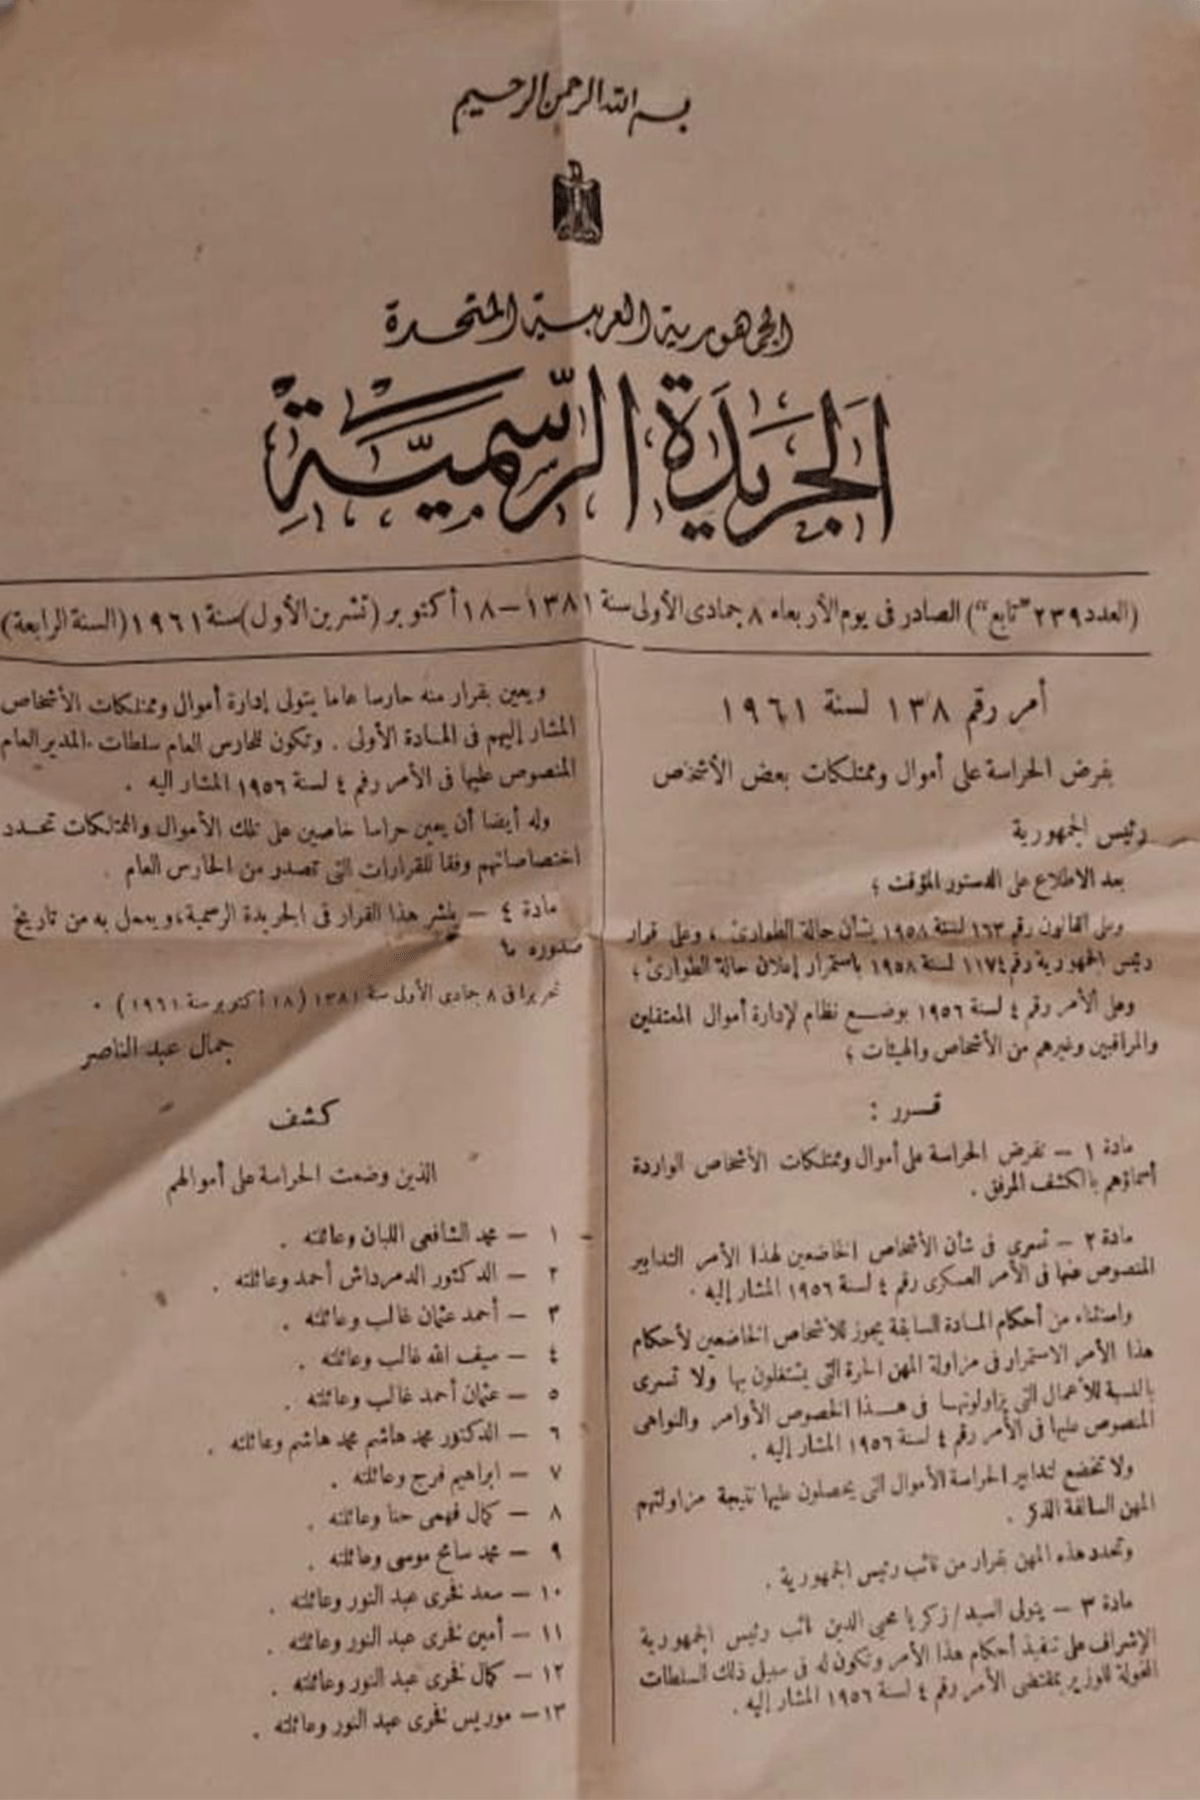 بسم الله الرحمن الرحيم
الجمهورية العربية المتحدة
الجَرِيدَة الرّسمِيَّةِ
(العدد ٢٣٩ "تابع") الصادر في يوم الأربعاء ٨ جمادى الأولى سنة ١٣٨١ – ١٨ أكتوبر (تشرين الأول) سنة ١٩٦١ (السنة الرابعة)
أمر رقم ١٣٨ لسنة ١٩٦١
بفرض الحراسة على أموال وممتلكات بعض الأشخاص
رئيس الجمهورية
بعد الاطلاع على الدستور المؤقت ؛
وعلى القانون رقم ١٦٣ لسنة ١٩٥٨ بشأن حالة الطوارئ ، وعلى قرار
رئيس الجمهورية رقم ١١٧٤ لسنة ١٩٥٨ باستمرار إعلان حالة الطوارئ ؛
وعلى الأمر رقم ٤ لسنة ١٩٥٦ بوضع نظام لإدارة أموال المعتقلين
والمراقبين وغيرهم من الأشخاص والهيئات ؛
قرر :
مادة ١ – تفرض الحراسة على أموال وممتلكات الأشخاص الواردة
أسماؤهم بالكشف المرفق .
مادة ٢ – تسرى فى شأن الأشخاص الخاضعين لهذا الأمر التدابير
المنصوص عنها فى الأمر العسكرى رقم ٤ لسنة ١٩٥٦ المشار إليه .
واستثناء من أحكام المادة السابقة يجوز للأشخاص الخاضعين لأحكام
هذا الأمر الاستمرار فى مزاولة المهن الحرة التى يشتغلون بها ولا تسرى
بالنسبة للأعمال التى يزاولونها فى هذا الخصوص الأوامر والنواهى
المنصوص عليها فى الأمر رقم ٤ لسنة ١٩٥٦ المشار إليه .
ولا تخضع لتدابير الحراسة الأموال التى يحصلون عليها نتيجة مزاولتهم
المهن السالفة الذكر .
وتحدد هذه المهن بقرار من نائب رئيس الجمهورية .
مادة ٣ – يتولى السيد/ زكريا محيى الدين نائب رئيس الجمهورية
الإشراف على تنفيذ أحكام هذا الأمر وتكون له فى سبيل ذلك السلطات
المخولة للوزير بمقتضى الأمر رقم ٤ لسنة ١٩٥٦ المشار إليه .
ويعين بقرار منه حارسا عاما يتولى إدارة أموال وممتلكات الأشخاص
المشار إليهم فى المادة الأولى . وتكون للحارس العام سلطات المدير العام
المنصوص عليها فى الأمر رقم ٤ لسنة ١٩٥٦ المشار اليه .
وله أيضا أن يعين حراسا خاصين على تلك الأموال والممتلكات تحدد
اختصاصاتهم وفقا للقرارات التى تصدر من الحارس العام .
مادة ٤ – ينشر هذا القرار فى الجريدة الرسمية، ويعمل به من تاريخ
صدوره ؟
تحريرا فى ٨ جمادى الأولى سنة ١٣٨١ (١٨ أكتوبر سنة ١٩٦١) .
جمال عبد الناصر
كشف
الذين وضعت الحراسة على أموالهم
١ – محمد الشافعى اللبان وعائلته .
٢ – الدكتور الدمرداش أحمد وعائلته .
٣ – أحمد عثمان غالب وعائلته .
٤ – سيف الله غالب وعائلته .
٥ – عثمان أحمد غالب وعائلته .
٦ – الدكتور محمد هاشم محمد هاشم وعائلته .
٧ – ابراهيم فرج وعائلته .
٨ – كمال فهمى حنا وعائلته .
٩ – محمد سامح موسى وعائلته .
١٠ – سعد فخرى عبد النور وعائلته .
١١ – أمين فخرى عبد النور وعائلته .
١٢ – كمال فخرى عبد النور وعائلته .
١٣ – موريس فخرى عبد النور وعائلته .